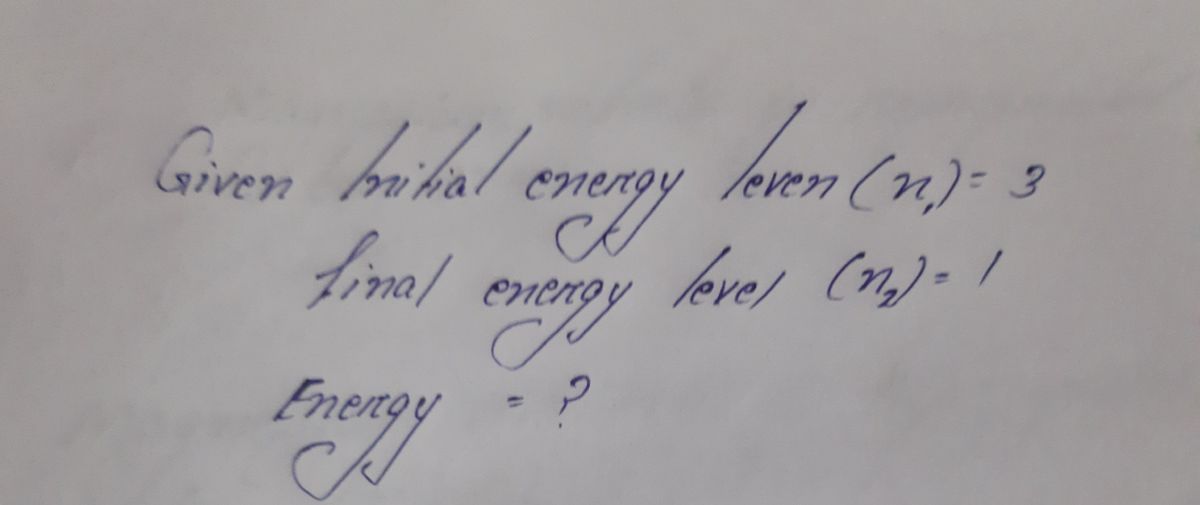 Given Initial energy leven (n₁) = 3
final energy level (n₂) = 1
Energy = ?